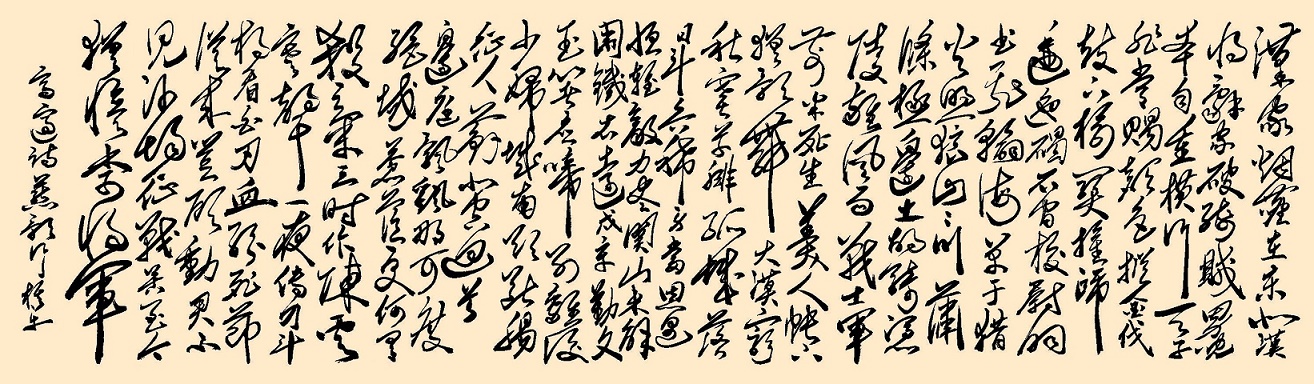 漢家烟塵在东北漢
将辭家破残賊男児
本自重横行天子
非常賜顔色摐金伐
鼓下榆関旌旆
逶迤碣石間校尉羽
书飛瀚海单于猎
火照狼山山川蕭
條極邊土胡騎憑
陵雜風雨戰士軍
前半死生美人帳下
猶歌舞大漠窮
秋塞草腓孤城落
日斗兵稀身當恩遇
恒輕敵力尽関山未解
圍鐵衣遠戍辛勤久
玉箸應啼别離後
少婦城南欲断腸
征人薊北空迴首
邊庭飄飖那可度
絶域蒼茫更何有
殺氣三时作陣雲
寒聲一夜傳刁斗
相看白刃血紛死節
從来豈顧勳君不
見沙場征戰苦至今
猶憶李将軍
高適詩燕歌行